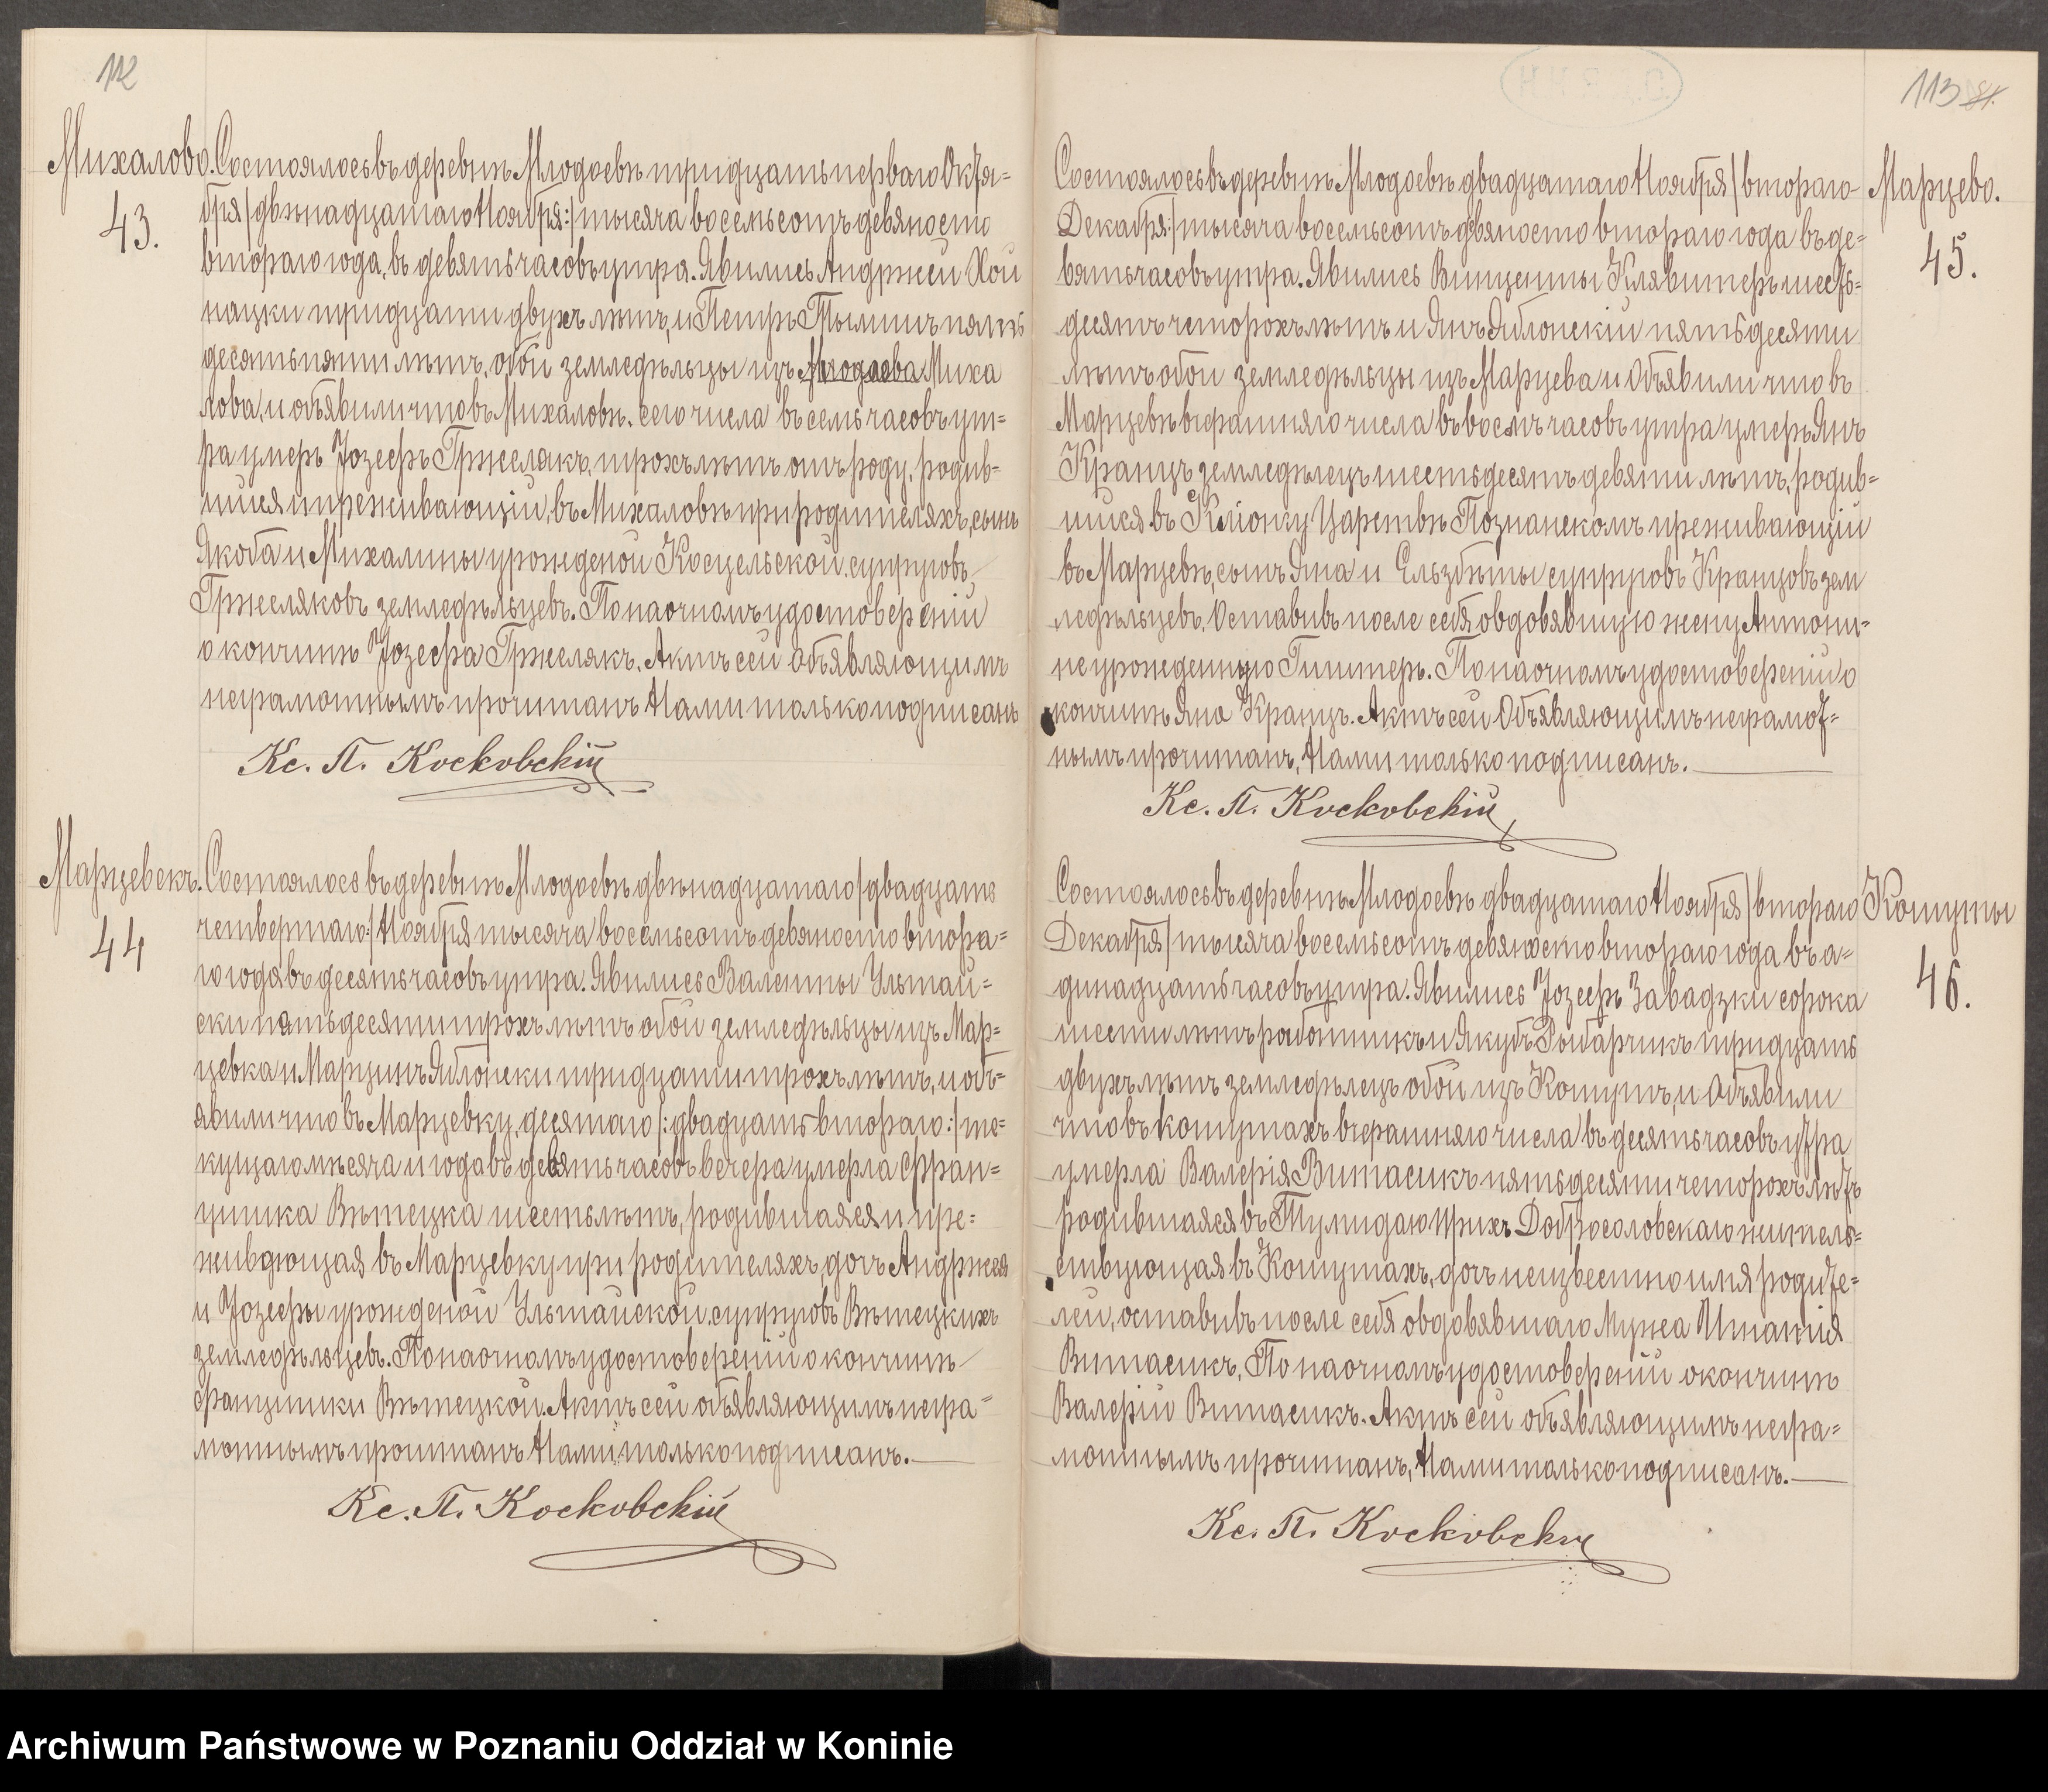 112
Михалово.
43.
Состоялось въ деревнѣ Млодоевѣ тридцать перваго Октя=
бря /двѣнадцатаго Ноября:/ тысяча восемьсотъ девяносто
втораго года, въ девять часовъ утра. Явились Андржей Хой
нацки тридцати двухъ лѣтъ, и Петръ Тылинъ пять
десять пяти лѣтъ, обои земледѣльцы изъ Млодаева Миха
лова, и объявили что въ Михаловѣ, сего числа въ семь часовъ ут=
ра умеръ Іозефъ Гржелякъ, трохъ лѣтъ отъ роду, родив=
шися и преживающій, въ Михаловѣ при родителяхъ, сынъ
Якоба и Михалины урожденой Косцельской, супруговъ
Гржеляковъ земледѣльцевъ. По наочномъ удостоверѣніи
о кончинѣ Іозефа Гржелякъ. Актъ сей Объявляющимъ
неграмотнымъ прочитанъ Нами только подписанъ
Кс. П. Косковскій
Марцевекъ.
44
Состоялось въ деревнѣ Млодоевѣ двѣнадцатаго /двадцать
четвертаго:/ Ноября тысяча восемьсотъ девяносто втора=
го года въ десять часовъ утра. Явились Валенты Ультай=
ски пятьдесяти трохъ лѣтъ обои земледѣльцы изъ Мар=
цевка и Марцинъ Яблонски тридцати трохъ лѣтъ, и объ=
явили что въ Марцевку, десятаго /:двадцать втораго:/ те=
кущаго мѣсяча и года въ девять часовъ вечера умерла Фран=
цишка Вѣтецка шесть лѣтъ, родившаяся и пре=
живающая въ Марцевку при родителяхъ, дочъ Андржея
и Іозефы урожденой Ультайской, супруговъ Вѣтецкихъ
земледѣльцевъ. По наочномъ удостоверѣніи о кончинѣ
Францишки Вѣтецкой. Актъ сей объявляющимъ негра=
мотнымъ прочитанъ Нами только подписанъ.
Кс. П. Косковскій
113
Марцево.
45.
Состоялось въ деревнѣ Млодоевѣ двадцатаго Ноября /втораго
Декабря:/ тысяча восемьсотъ девяносто втораго года въ де=
вять часовъ утра. Явились Винценты Клявитеръ шесть=
десятъ четорохъ лѣтъ и Янъ Яблонскій пятьдесяти
лѣтъ обои земледѣльцы изъ Марцева и Объявили что въ
Марцевѣ вчерашняго числа въ восмъ часовъ утра умеръ Янъ
Кранцъ земледѣлецъ шестьдесятъ девяти лѣтъ, родив=
шися въ Кліонку Царствѣ Познанскомъ преживающій
въ Марцевѣ, сынъ Яна и Ельзбѣты супруговъ Кранцовъ зем
ледѣльцевъ. Оставивъ после себя овдовявшую жену Антони=
не урожденную Гинтеръ. По наочномъ удостоверѣніи о
кончинѣ Яна Кранцъ. Актъ сей Объявляющимъ неграмот=
нымъ прочитанъ, Нами только подписанъ.
Кс. П. Косковскій
Кошуты
46.
Состоялось въ деревнѣ Млодоевѣ двадцатаго Ноября /втораго
Декабря/ тысяча восемьсотъ девяносто втораго года въ а=
динадцать часовъ утра. Явились Іозефъ Завадзки сорока
шести лѣтъ работникъ и Якубъ Рыбарчикъ тридцать
двухъ лѣтъ земледѣлецъ обои изъ Кошутъ, и Объявили
что въ Кошутахъ вчерашняго числа въ десять часовъ утра
умерла Валерія Витасикъ пятьдесяти четорохъ лѣтъ
родившаяся въ Добросоловскаго житель=
ствующая въ Кошутахъ, дочъ неизвестно имя родите=
лей, оставивъ после себя овдовявшаго Мужа Игнація
Витасикъ. По наочномъ удостоверѣніи о кончинѣ
Валеріи Витасикъ. Актъ сей объявляющимъ негра=
мотнымъ прочитанъ, Нами только подписанъ.
Кс. П. Косковскій
Archiwum Państwowe w Poznaniu Oddział w Koninie